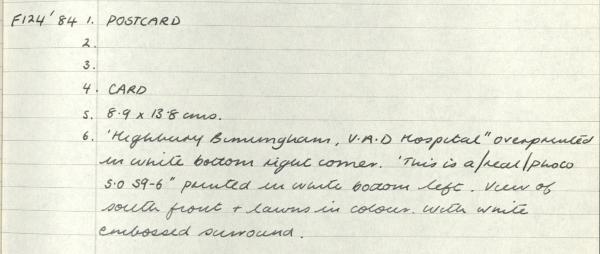 F124'84 1. POSTCARD
2.
3.
4. CARD
5. 8.9 x 13.8 cms.
6. 'Highbury Birmingham, V.A.D Hospital" overprinted
in white bottom right corner. 'This is a/real/photo
S.O 59-6" printed in white bottom left. View of
south front + lawns in colour. With white
embossed surround.